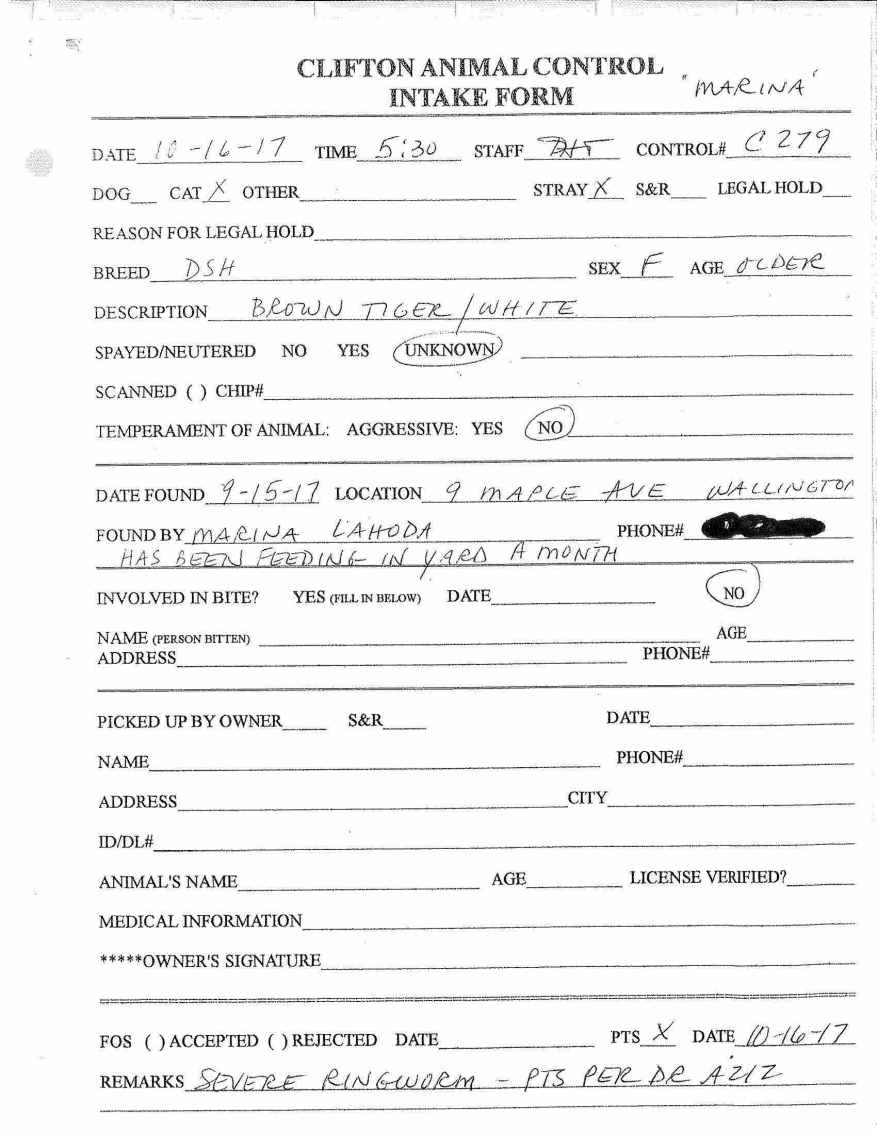 CLIFTON ANIMAL CONTROL
INTAKE FORM "MARINA"
DATE 10-16-17 TIME 5:30 STAFF CONTROL# C 279
DOG CAT X OTHER STRAY X S&R LEGAL HOLD
REASON FOR LEGAL HOLD
BREED DSH SEX F AGE OLDER
DESCRIPTION BROWN TIGER/WHITE
SPAYED/NEUTERED NO YES UNKNOWN
SCANNED ( ) CHIP#
TEMPERAMENT OF ANIMAL: AGGRESSIVE: YES NO
DATE FOUND 9-15-17 LOCATION 9 MAPLE AVE WALLINGTON
FOUND BY MARINA LAHODA PHONE#
HAS BEEN FEEDING IN YARD A MONTH
INVOLVED IN BITE? YES (FILL IN BELOW) DATE NO
NAME (PERSON BITTEN) AGE
ADDRESS PHONE#
PICKED UP BY OWNER S&R DATE
NAME PHONE#
ADDRESS CITY
ID/DL#
ANIMAL'S NAME AGE LICENSE VERIFIED?
MEDICAL INFORMATION
*****OWNER'S SIGNATURE
FOS ( ) ACCEPTED ( ) REJECTED DATE PTS X DATE 10-16-17
REMARKS SEVERE RINGWORM - PTS PER DR AZIZ